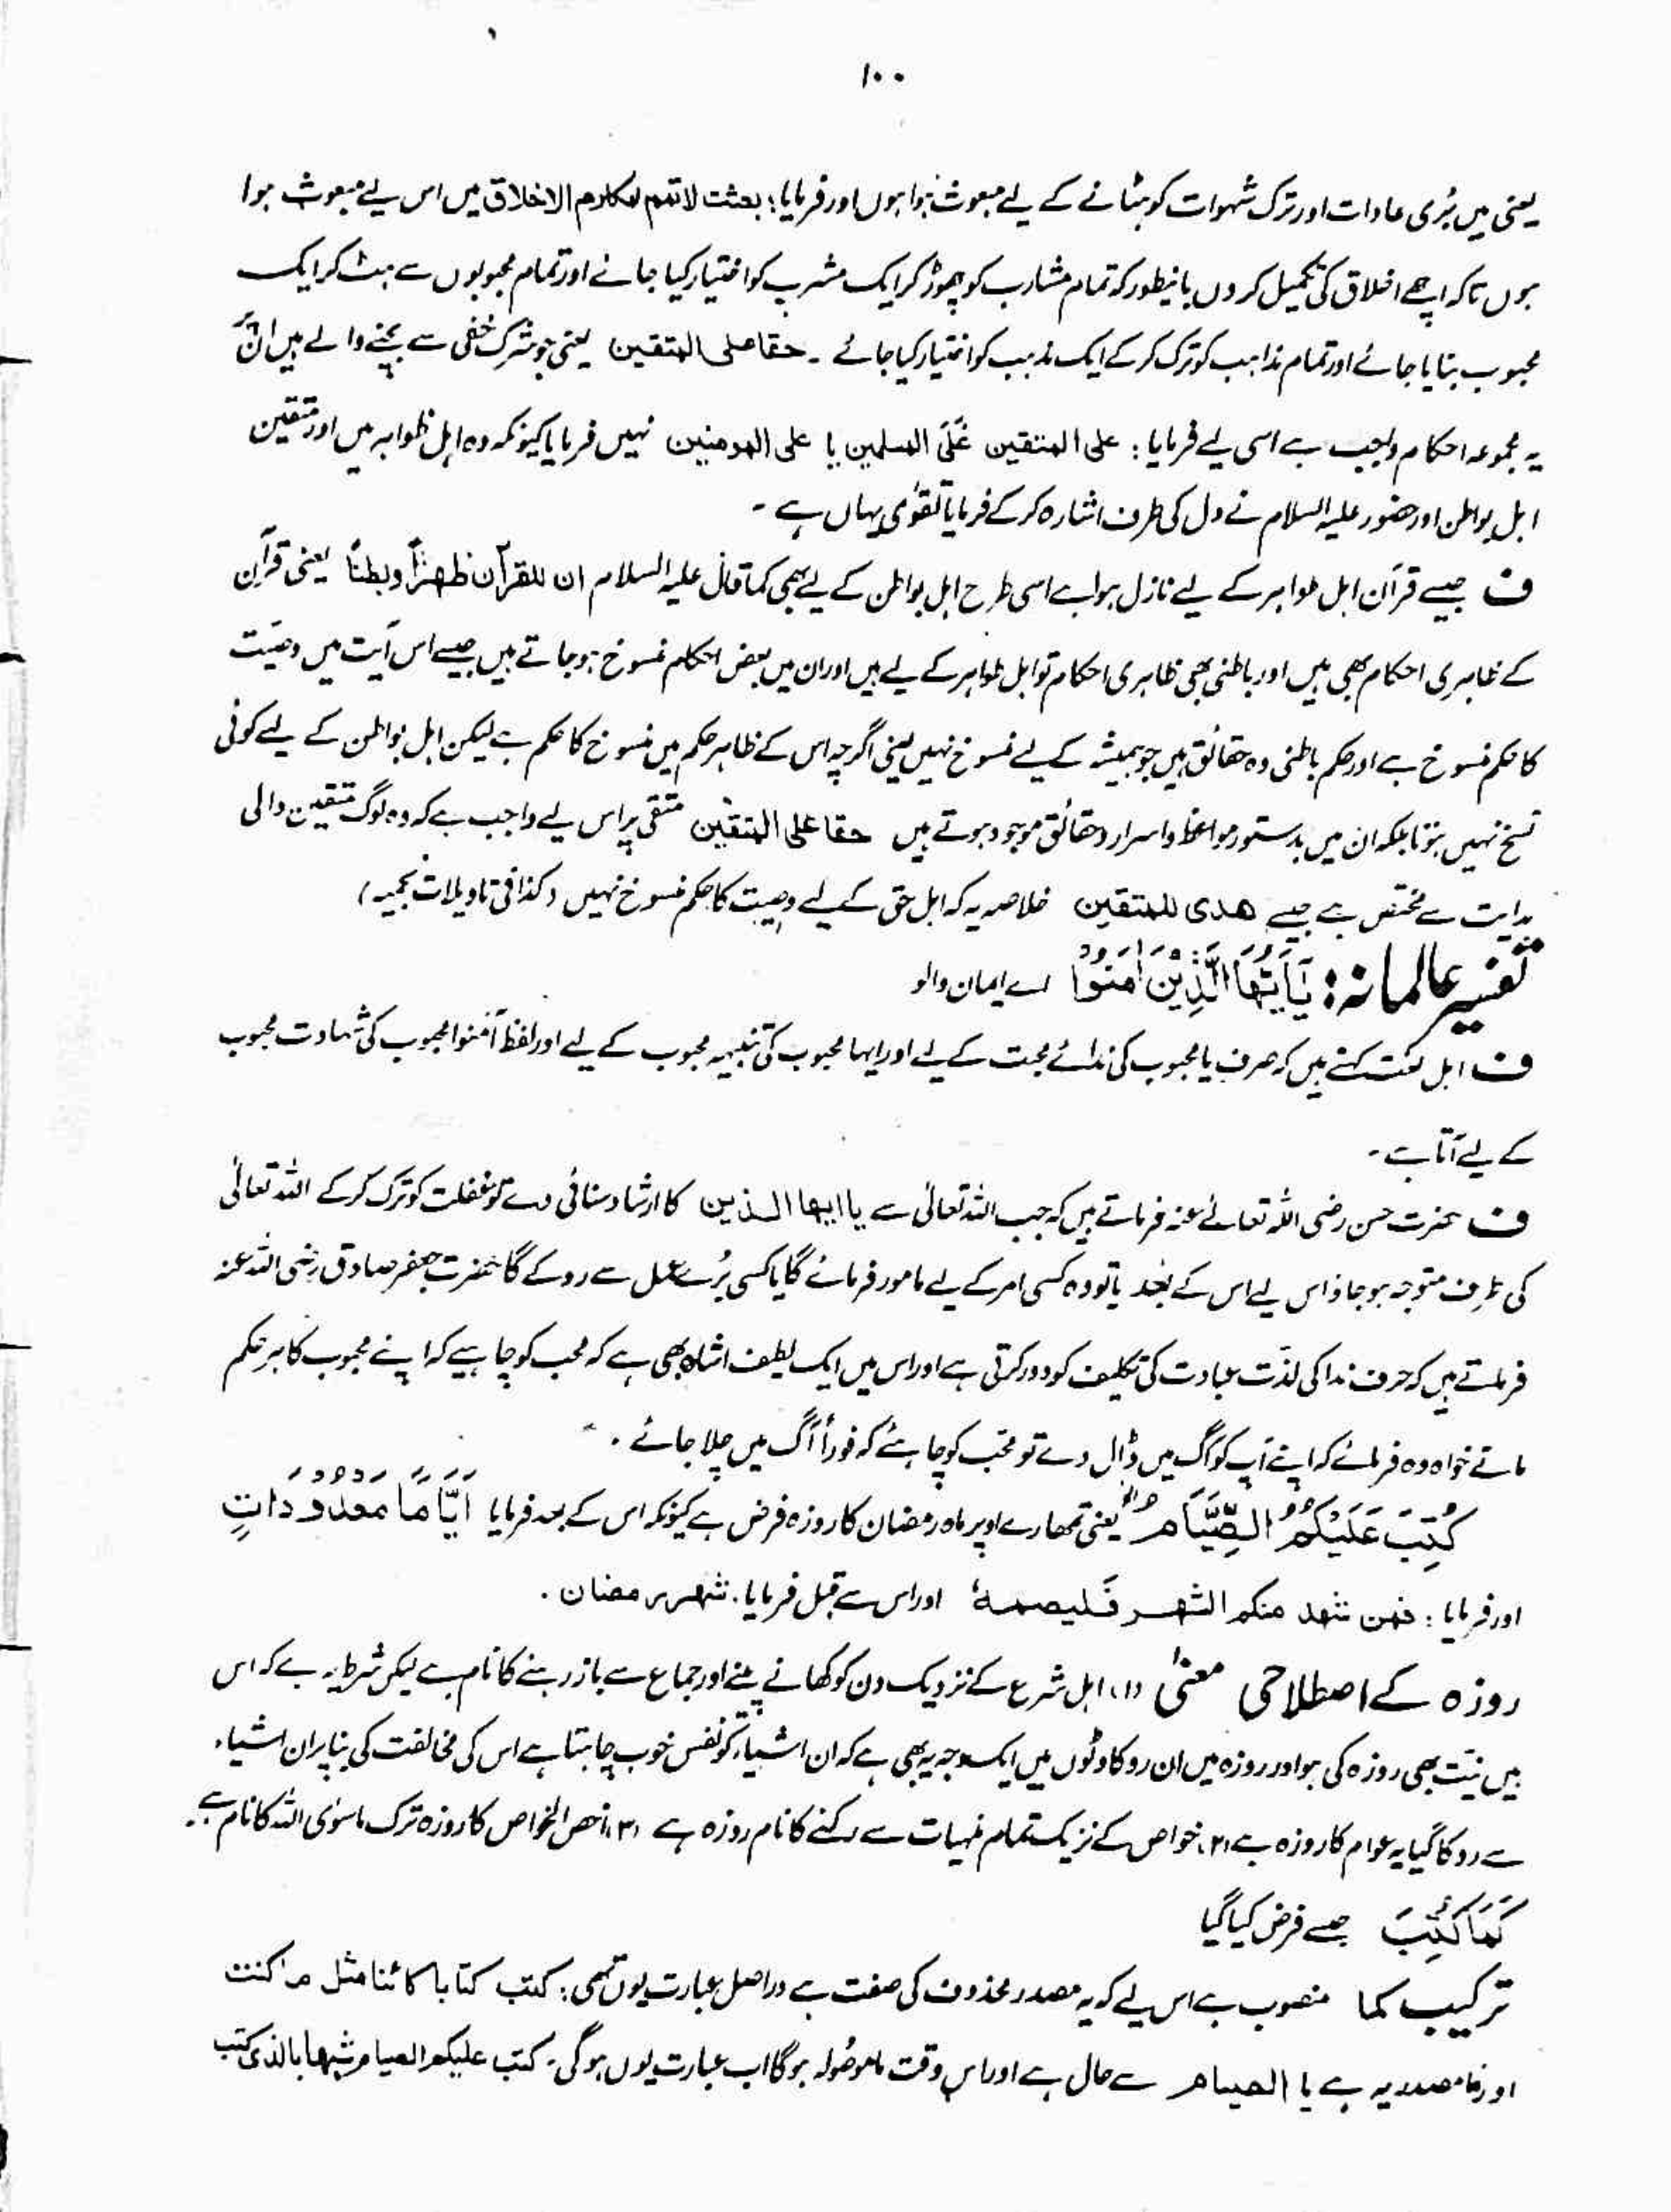 ۱۰۰
یعنی میں بُری عادات اور ترک شہوات کو ہٹانے کے لیے مبعوث ہوا ہوں اور فرمایا: بعثت لاتمم لمکارم الاخلاق میں اس لیے مبعوث ہوا
ہوں تاکہ اچھے اخلاق کی تکمیل کر دوں بانیطور کہ تمام مشارب کو چھوڑ کر ایک مشرب کو اختیار کیا جائے اور تمام محبوبوں سے ہٹ کر ایک
محبوب بنایا جائے اور تمام مذاہب کو ترک کر کے ایک مذہب کو اختیار کیا جائے ۔ حقا علی المتقین یعنی جو شرک خفی سے بچنے والے ہیں ان پر
یہ مجموعہ احکام واجب ہے اسی لیے فرمایا: علی المتقین عَلَی المسلمین یا علی المومنین نہیں فرمایا کیونکہ وہ اہل ظواہر ہیں اور متقین
اہل بواطن اور حضور علیہ السلام نے دل کی طرف اشارہ کر کے فرمایا تقوٰی یہاں ہے ۔
ف جیسے قرآن اہل ظواہر کے لیے نازل ہوا ہے اسی طرح اہل بواطن کے لیے بھی کما قال علیہ السلام ان للقرآن ظھراً وبطناً یعنی قرآن
کے ظاہری احکام بھی ہیں اور باطنی بھی ظاہری احکام تو اہل ظواہر کے لیے ہیں اور ان میں بعض احکام منسوخ ہو جاتے ہیں جیسے اس آیت میں وصیّت
کا حکم منسوخ ہے اور حکم باطنی وہ حقائق ہیں جو ہمیشہ کے لیے منسوخ نہیں یعنی اگرچہ اس کے ظاہر حکم میں منسوخ کا حکم ہے لیکن اہل بواطن کے لیے کوئی
نسخ نہیں ہوتا بلکہ ان میں بدستور مواعظ و اسرار و حقائق موجود ہوتے ہیں حقا علی المتقین متقی پر اس لیے واجب ہے کہ وہ لوگ متقین والی
ہدایت سے مختص ہے جیسے ھدی للمتقین خلاصہ یہ کہ اہل حق کے لیے وصیت کا حکم منسوخ نہیں (کذا فی تاویلات نجمیہ)
تفسیر عالمانہ: یٰۤاَیُّھَا الَّذِیْنَ اٰمَنُوْا اے ایمان والو
ف اہل لغت کہتے ہیں کہ حرف یا محبوب کی ندائے محبت کے لیے اور ایھا محبوب کی تنبیہہ محبوب کے لیے اور لفظ آمنوا محبوب کی شہادت محبوب
کے لیے آتا ہے ۔
ف حضرت حسن رضی اللہ تعالیٰ عنہ فرماتے ہیں کہ جب اللہ تعالٰی سے یا ایھا الذین کا ارشاد سنائی دے تو غفلت کو ترک کر کے اللہ تعالٰی
کی طرف متوجہ ہو جاؤ اس لیے اس کے بعد یا تو وہ کسی امر کے لیے مامور فرمائے گا یا کسی بُرے عمل سے روکے گا حضرت جعفر صادق رضی اللہ عنہ
فرماتے ہیں کہ حرف ندا کی لذّت عبادت کی تکلیف کو دور کرتی ہے اور اس میں ایک لطیف اشارہ بھی ہے کہ محب کو چاہیے کہ اپنے محبوب کا ہر حکم
مانے خواہ وہ فرمائے کہ اپنے آپ کو آگ میں ڈال دے تو محب کو چاہئے کہ فوراً آگ میں چلا جائے ۔
کُتِبَ عَلَیْکُمُ الصِّیَامُ یعنی تمھارے اوپر ماہ رمضان کا روزہ فرض ہے کیونکہ اس کے بعد فرمایا اَیَّامًا مَّعْدُوْدَاتٍ
اور فرمایا: فمن شھد منکم الشھر فَلیصمہُ اور اس سے قبل فرمایا. شھر رمضان .
روزہ کے اصطلاحی معنیٰ (۱) اہل شرع کے نزدیک دن کو کھانے پینے اور جماع سے باز رہنے کا نام ہے لیکن شرط یہ ہے کہ اس
میں نیّت بھی روزہ کی ہو اور روزہ میں ان روکاوٹوں میں ایک وجہ یہ بھی ہے کہ ان اشیاء کو نفس خوب چاہتا ہے اس کی مخالفت کی بنا پر ان اشیاء
سے روکا گیا یہ عوام کا روزہ ہے (۲) خواص کے نزدیک تمام منہیات سے رکنے کا نام روزہ ہے (۳) اخص الخواص کا روزہ ترک ماسوی اللہ کا نام ہے ۔
کَمَا کُتِبَ جیسے فرض کیا گیا
ترکیب کما منصوب ہے اس لیے کہ یہ مصدر محذوف کی صفت ہے دراصل عبارت یوں تھی: کتب کتابا کائنا مثل ما کتب
اور ما مصدریہ ہے یا الصیام سے حال ہے اور اس وقت ما موصولہ ہوگا اب عبارت یوں ہوگی: کتب علیکم الصیام مشبھا بالذی کتب